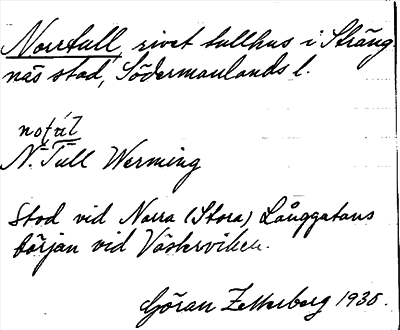 Norrtull, rivet tullhus i Sträng
näs stad, Södermanlands l.
N. Tull Werming
Stod vid Norra (Stora) Långgatans
början vid Västerviken.
Göran Zetterberg 1935.